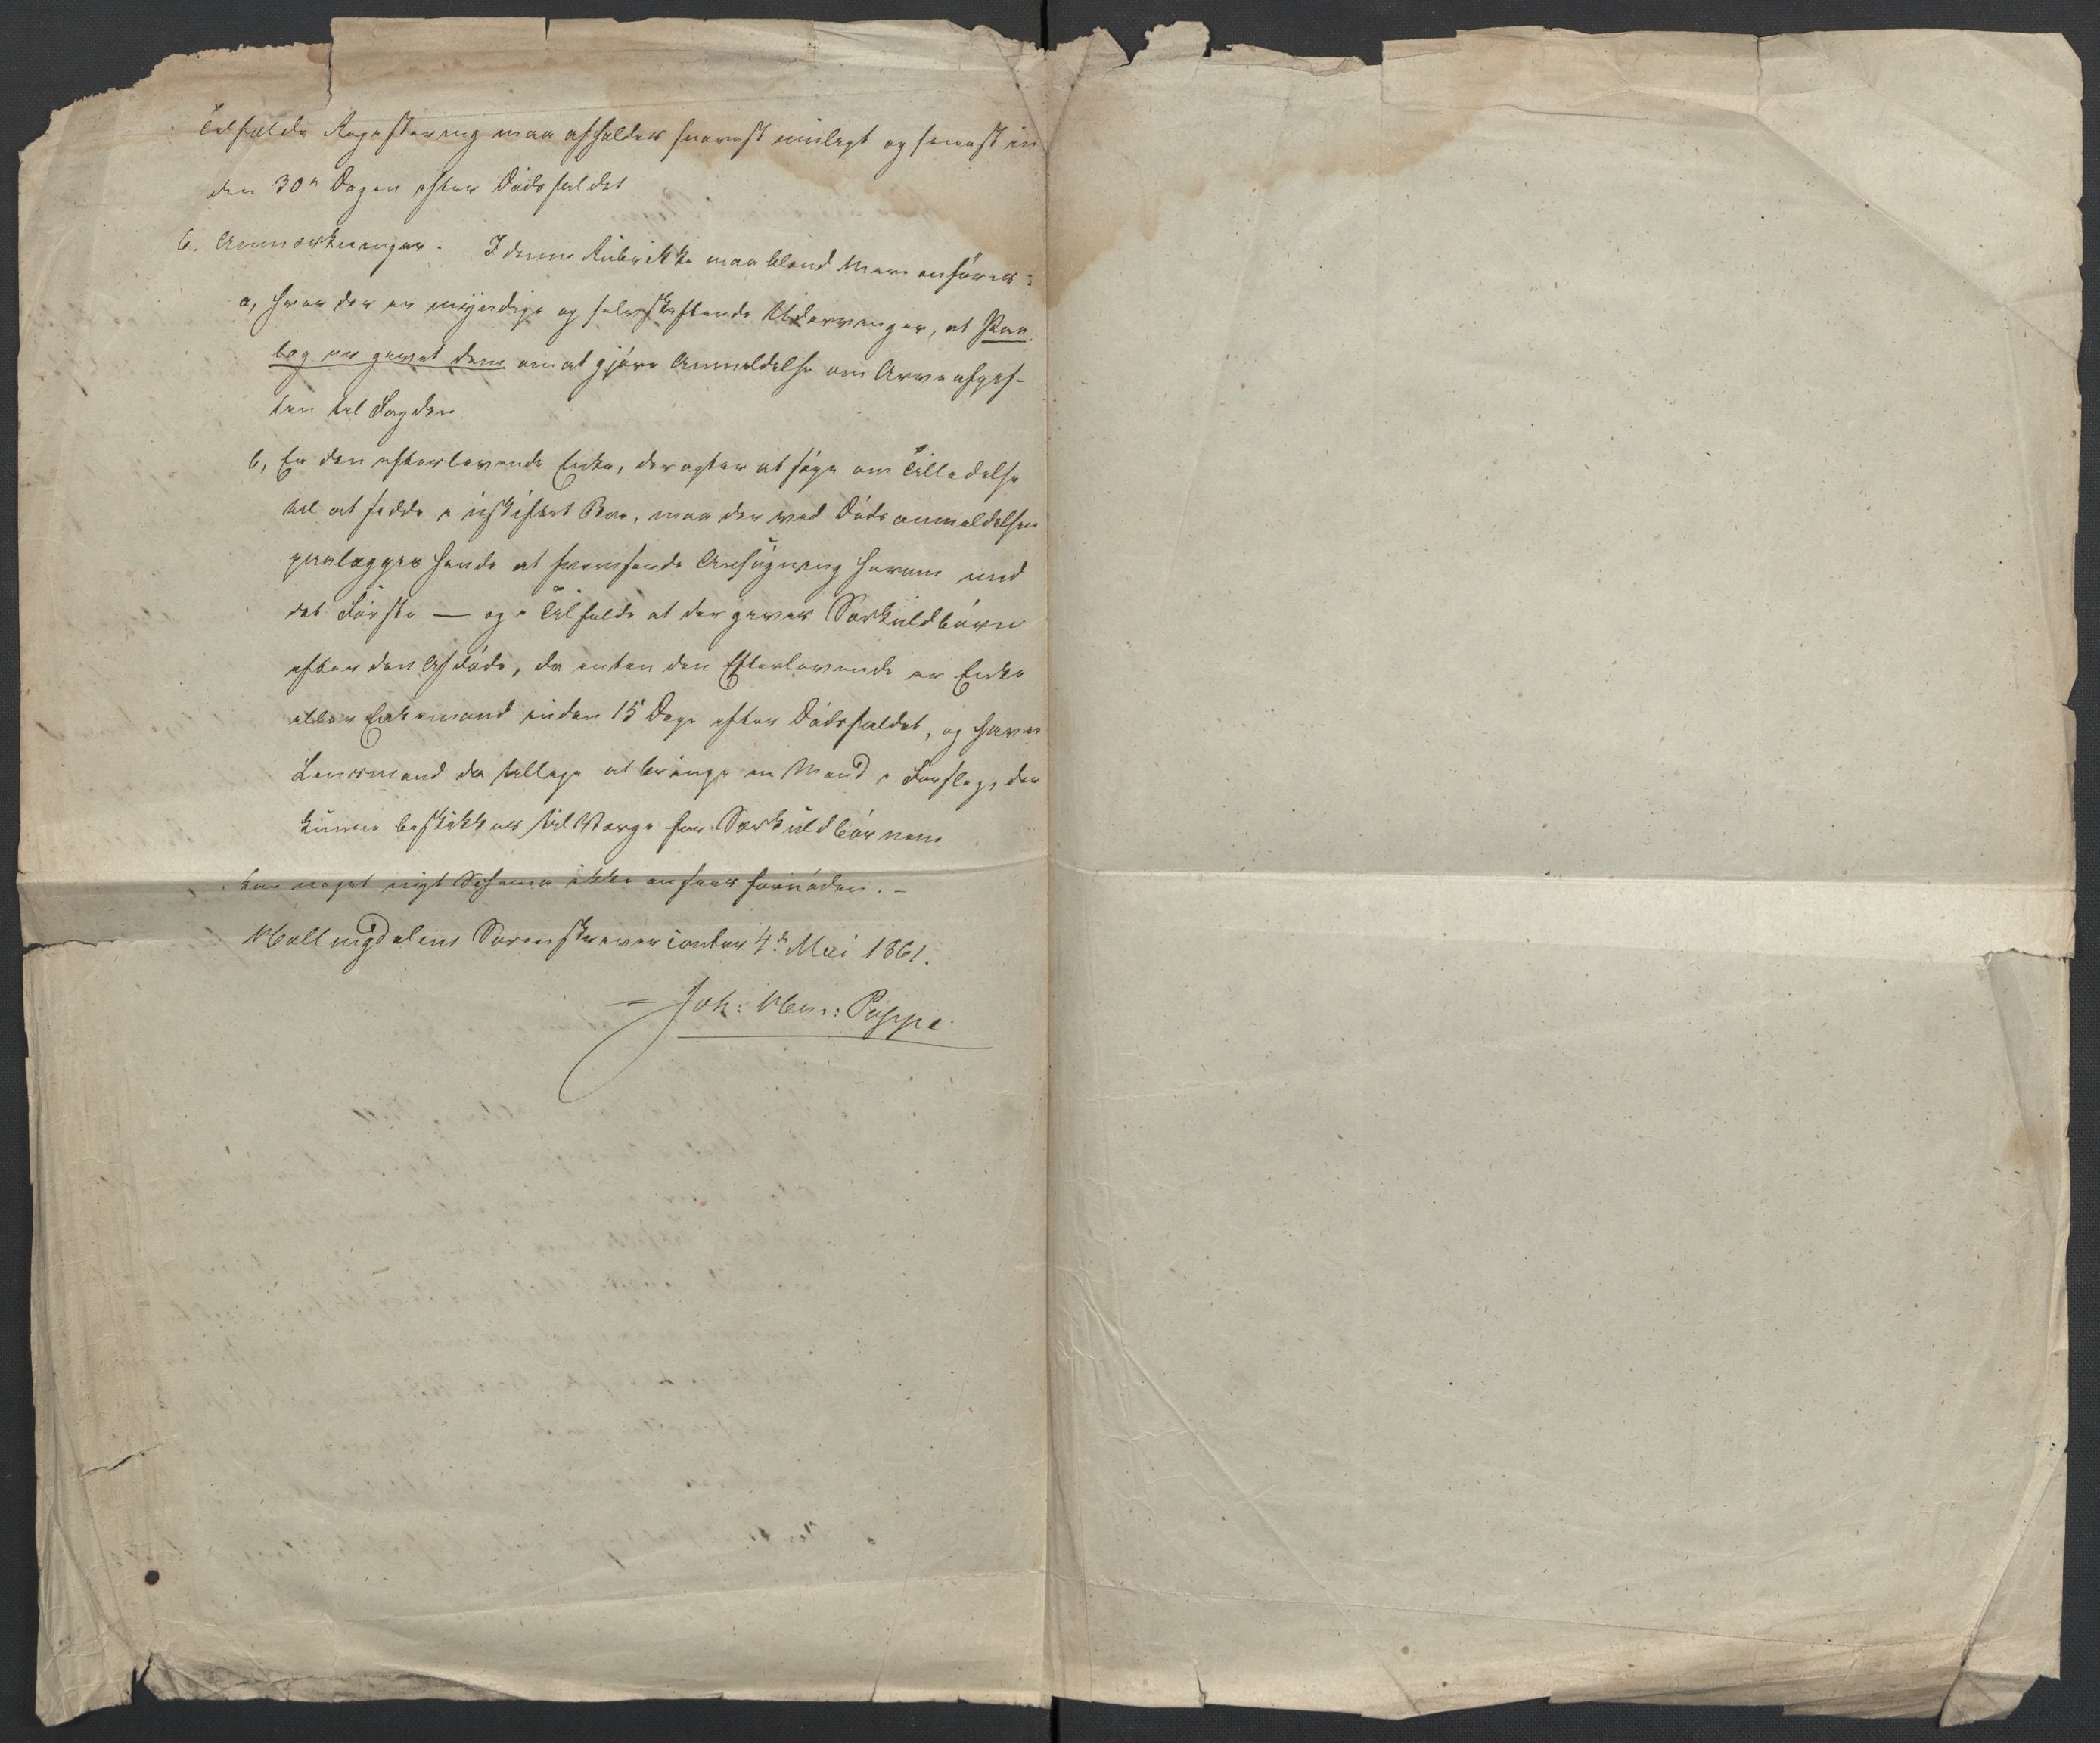 Tilfælde Registrering maa afholdes snarest muligt og senest in
den 30te Dagen efter Dødsfaldet
6. Anmærkninger. I denne Rubrikke maa bland Mere anføres:
a, hvor der er myndige og selvskiftende Udarvinger, at Paa
læg er givet dem om at gjøre Anmeldelse om Arveafgif-
ten til Fogden.
b, Er den efterlevende Enke, der agter at søge om Tilladelse
til at sidde i uskiftet Boe, maa der ved Dødsanmeldelsen
paalægges hende at fremsende Ansøgning herom med
det Første — og i Tilfælde at der gives Særkuldbørn
efter den Afdøde, da enten den Efterlevende er Enke
eller Enkemand inden 15 Dage efter Dødsfaldet, og haver
Lensmand da tillige at bringe en Mand i Forslag, der
kunne beskikkes til Værge for Særkuldbørnene
noget nyt Schema ikke ansees fornøden. —
Hallingdalens Sorenskrivercontor 4de Mai 1861.
Joh: Hen: Pappe.